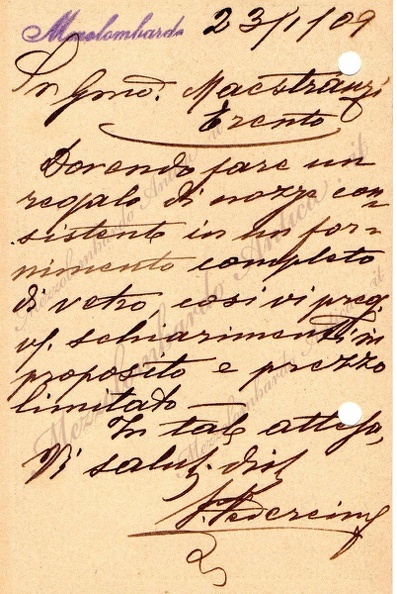 Mezolombardo 23/1/09
Sr Giov. Maestranzi
Trento
Dovendo fare un
regalo di nozze con-
sistente in un for-
nimento completo
di vetro, così vi preg.
schiarimenti in
proposito e prezzo
limitato —
In tale attesa,
Vi salut. dist